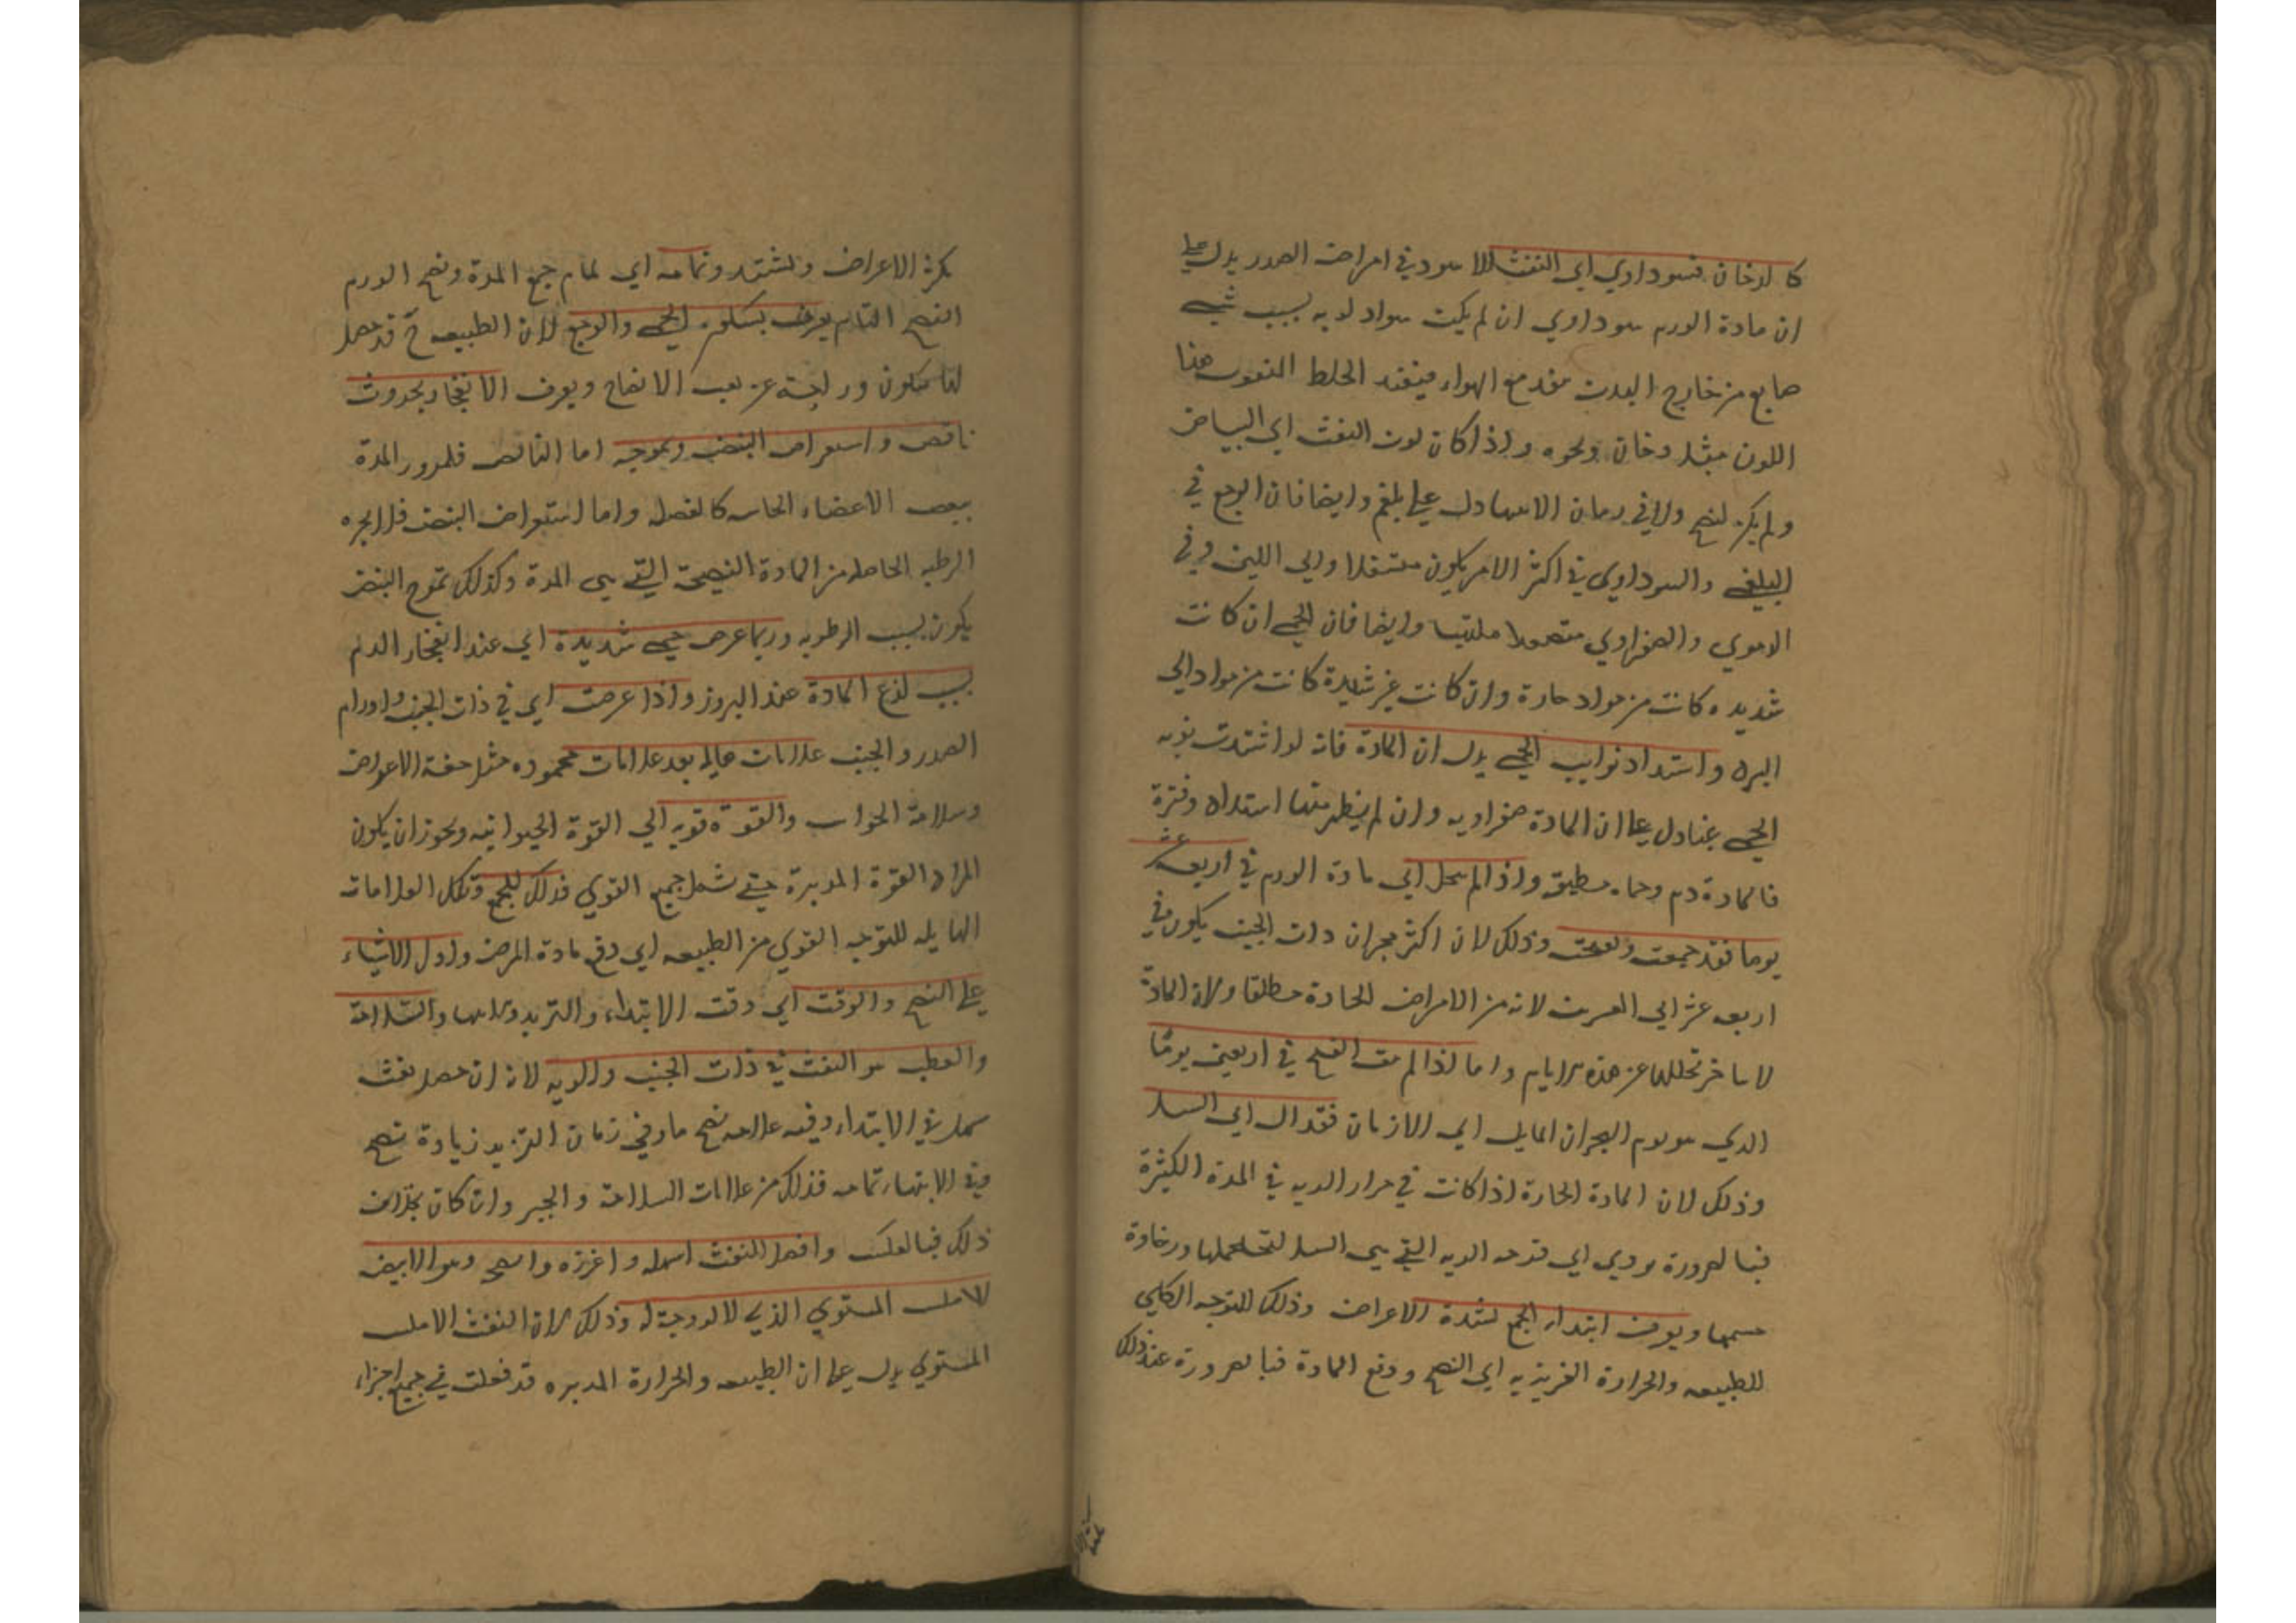 كالدخان فسوداوي اي النفث الاسود في امراض الصدر يدل على
ان مادة الورم سوداوي ان لم يكن سواد لونه بسبب شيء
صابغ من خارج البدن مع الهواء الخلط المنفوث هذا
اللون مثل دخان ونحوه واذا كان لون النفث الي البياض
ولم يكن لنضج ولا في زمان الانتها دل علي بلغم وايضا فان الوجع في
البلغمي والسوداوي في اكثر الامر يكون متسفلا والي اللين وفي
الدموي والصفراوي متصعدا ملتهبا وايضا فان الحمي ان كانت
شديده كانت من مواد حارة وان كانت غير شديدة كانت من مواد الي
البرد واشتداد نوايب الحمي يدل ان المادة فانه لو اشتدت نوبه
الحمي غبا دل علي ان المادة صفراويه وان لم يظهر منها اشتداد وفترة
فالمادة دم وحماه مطبقة واذا لم تتحلل اي مادة الورم في اربعة عشر
يوما فقد جمعت وذلك لان اكثر بحران ذات الجنب يكون في
اربعه عشر الي العشرين لانه من الامراض الحادة مطلقا ولان المادة
لا يتاخر تحللها عن هذه الايام واما اذا لم القيح في اربعين يوما
الذي هو يوم البحران المايل الي الازمان فقد ال اي السل
وذلك لان المادة الحارة اذا كانت في جوار الريه في المدة الكثيرة
فبالضرورة يودي الي قرحه الريه التي هي السل لتخلخلها ورخاوة
جسمها ويعرف ابتداء الجمع لشدة الاعراض وذلك للتوجه الكلي
للطبيعه والحرارة الغريزيه الي النضج ودفع المادة فبالضرورة عند ذلك
تكثر الاعراض وتشتد وتمامه اي تمام جمع المدة ونضج الورم
النضج التام يعرف بسكون الحمي والوجع لان الطبيعه ح قد حصل
لها سكون وراحة عن تعب الانضاج ويعرف الانفجار بحدوث
ناقض واستعراض النبض وتموجه اما الناقض فلمرور المدة
ببعض الاعضاء الحاسه كالعضل واما استعراض النبض
الرطبه الحاصله من المادة النضيجة التي هي المدة وكذلك تموج النبض
يكون بسبب الرطوبه وربما عرض حمي شديدة اي عند انفجار الورم
بسبب لذع المادة عند البروز واذا عرضت اي في ذات الجنب واورام
الصدر والجنب علامات هايله بعد علامات محموده مثل خفة الاعراض
وسلامة الحواس والقوة قويه اي القوة الحيوانيه ويجوز ان يكون
المراد القوة المدبرة حتي شمل جميع القوي فذلك للجمع وتلك العلامات
الهايله للتوجه القوي من الطبيعه اي دفع مادة المرض وادل الاشياء
علي النضج والوقت اي وقت الابتداء والتزيد والسلامة
والعطب هو النفث في ذات الجنب والريه لانه ان حصل نفث
سهل في الابتداء وفيه علامه نضج ما وفي زمان التزيد زيادة نضج
وفي الانتهاء تمامه فذلك من علامات السلامة والخير وان كان بخلاف
ذلك فبالعكس وافضل النفث اسهله واغزره وانضجه وهو الابيض
الاملس المستوي الذي لا لزوجة له وذلك لان النفث الاملس
المستوي يدل علي ان الطبيعه والحرارة المدبره قد فعلت في جميع اجزاء